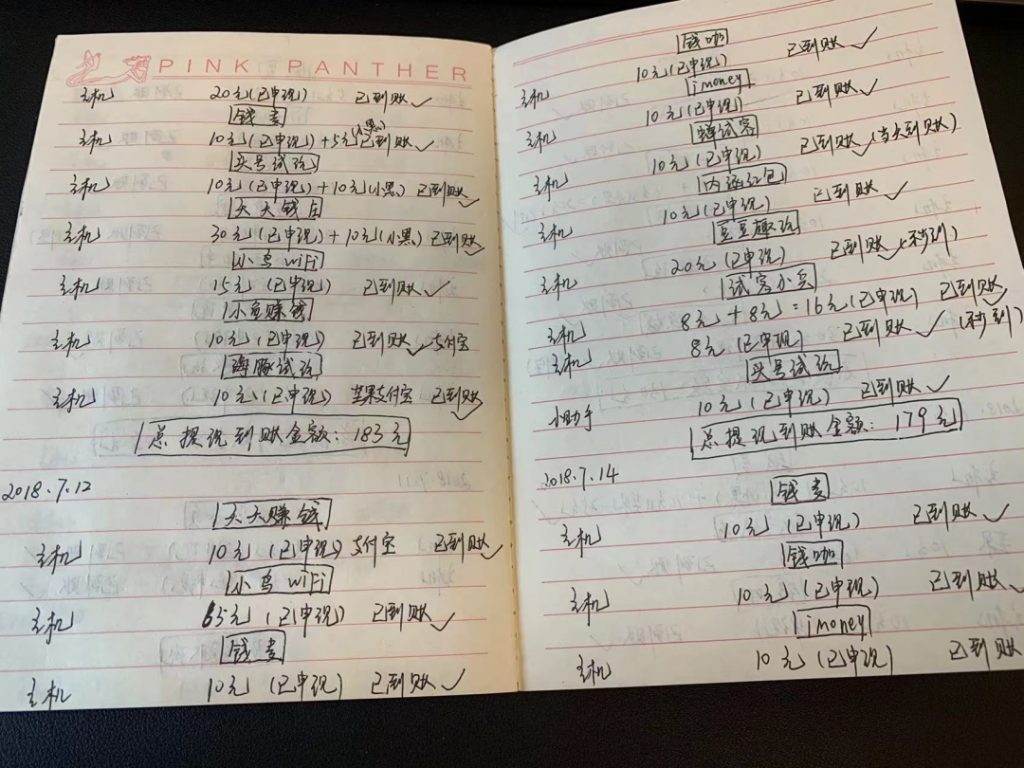 PINK PANTHER
主机 20元(已申现) 已到账✓
钱麦
主机 10元(已申现)+5元(小黑)已到账✓
头号试玩
主机 10元(已申现)+10元(小黑) 已到账✓
天天钱包
主机 30元(已申现)+10元(小黑) 已到账✓
小鸟WiFi
主机 15元(已申现) 已到账✓
小鱼赚钱
主机 10元(已申现) 已到账✓支付宝
海豚试玩
主机 10元(已申现) 苹果支付宝 已到账✓
总提现到账金额:183元
2018.7.12
天天赚钱
主机 10元(已申现) 支付宝 已到账✓
小鸟WiFi
主机 65元(已申现) 已到账✓
钱麦
主机 10元(已申现) 已到账✓
钱咖
主机 10元(已申现) 已到账✓
imoney
主机 10元(已申现) 已到账✓
蝉试客
主机 10元(已申现) 已到账✓(当天到账)
内涵红包
主机 10元(已申现) 已到账✓
豆豆趣玩
主机 20元(已申现) 已到账✓(秒到)
试客小兵
主机 8元+8元=16元(已申现) 已到账✓
主机 8元(已申现) 已到账✓(秒到)
头号试玩
小助手 10元(已申现) 已到账✓
总提现到账金额:179元
2018.7.14
钱麦
主机 10元(已申现) 已到账✓
钱咖
主机 10元(已申现) 已到账✓
imoney
主机 10元(已申现) 已到账✓